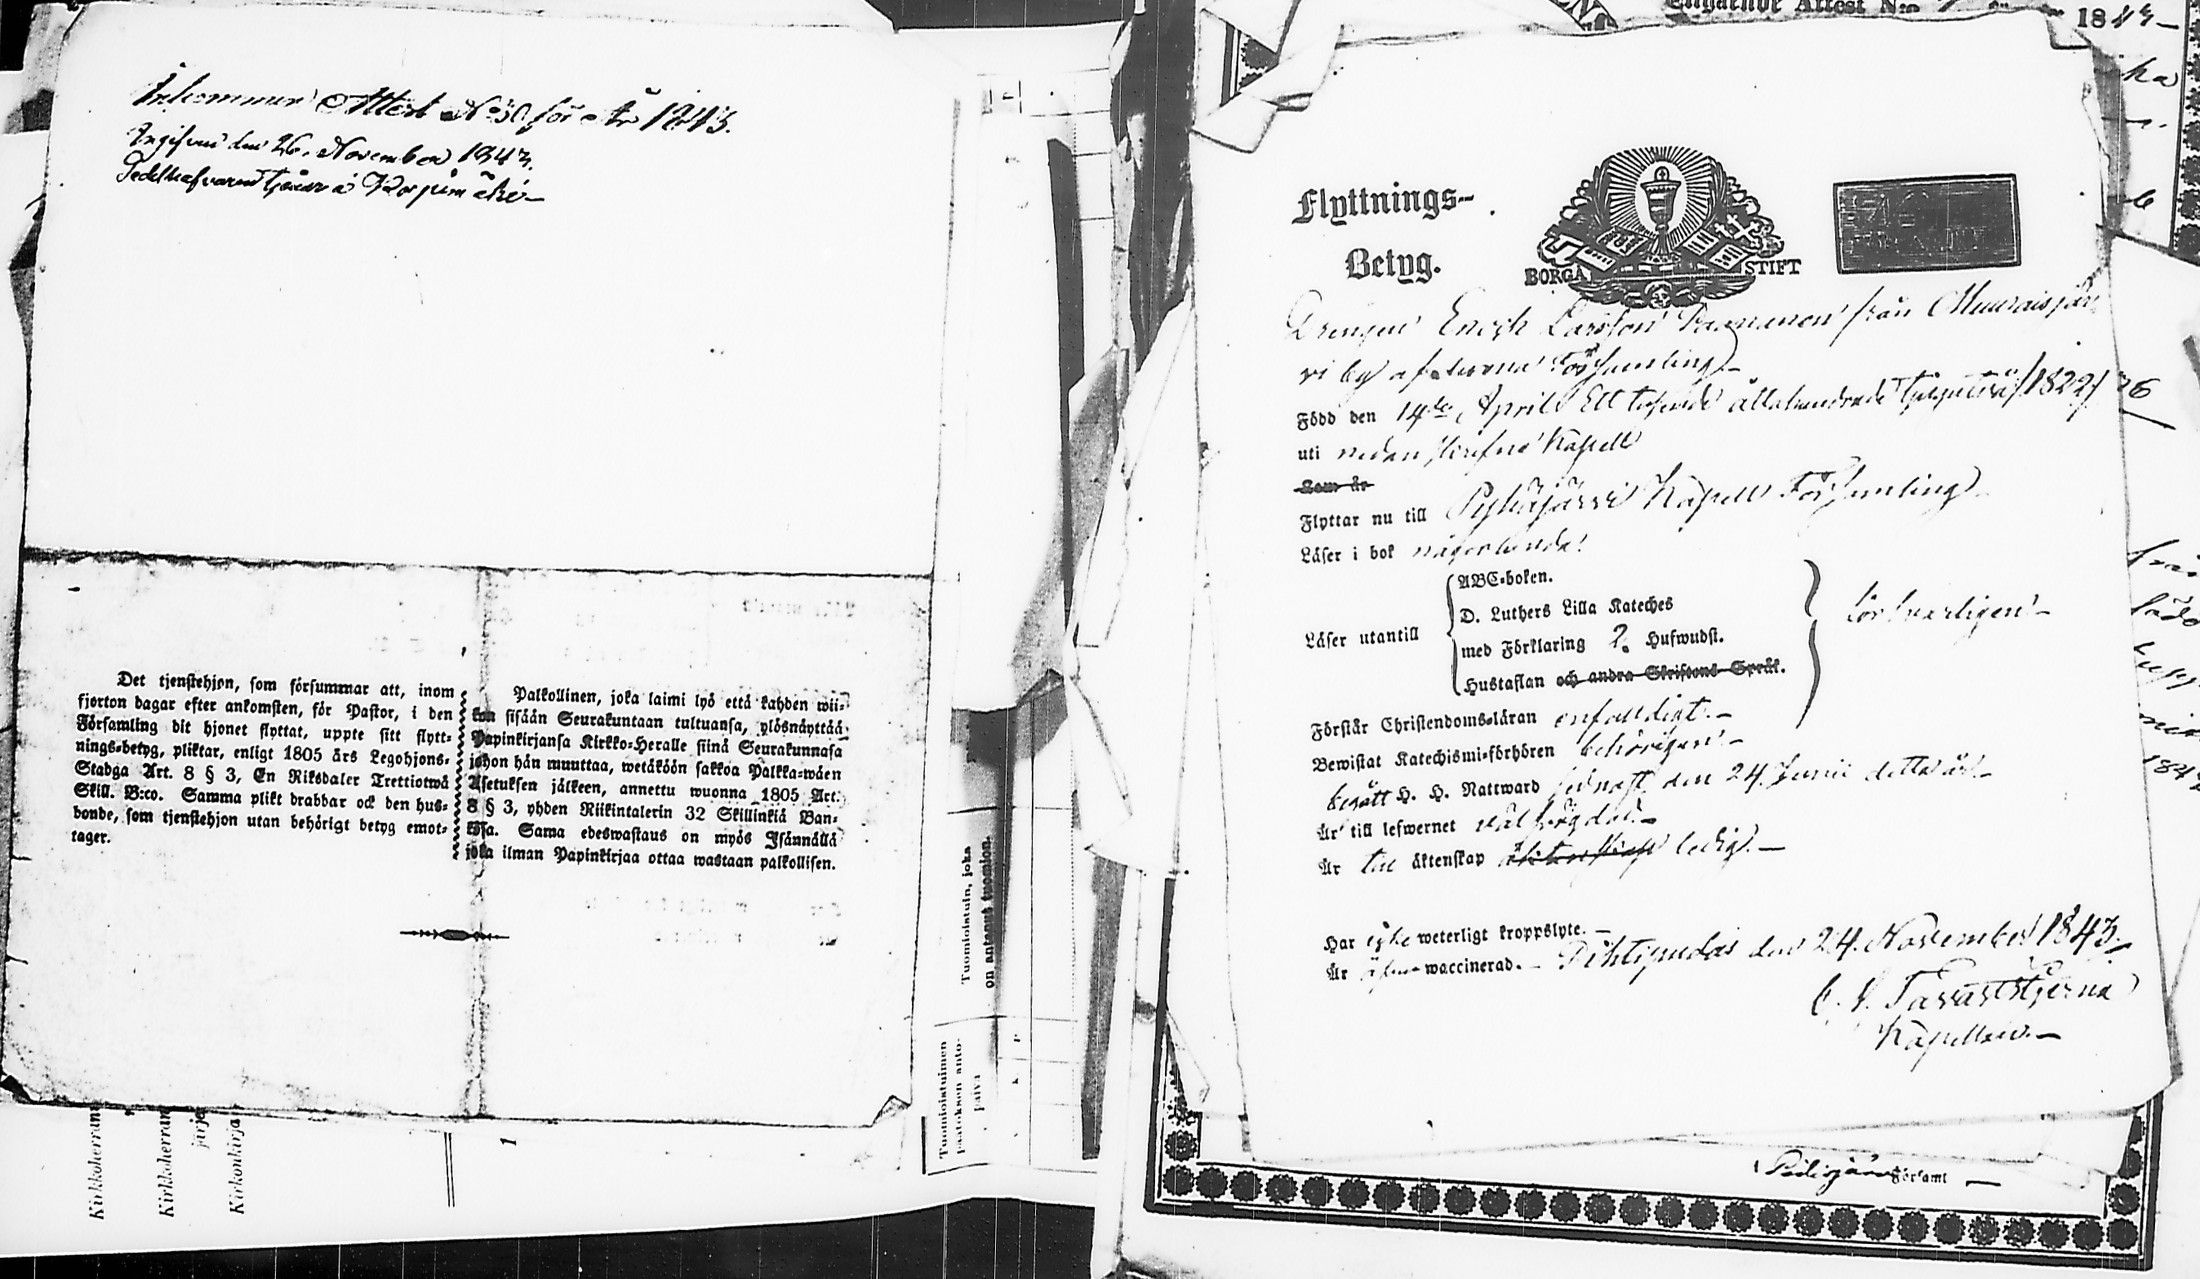 Inkommen Attest No 30 för År 1843.
Ingifven den 26. November 1843.
Sedelhafvaren tjenar å Korpimäki
Det tjenstehjon, som försummar att, inom
fjorton dagar efter ankomsten, för Pastor, i den
Församling dit hjonet flyttat, uppte sitt flytt-
nings-betyg, pliktar, enligt 1805 års Legohjons-
Stadga Art. 8 § 3, En Riksdaler Trettiotwå
Skill. B:co. Samma plikt drabbar ock den hus-
bonde, som tjenstehjon utan behörigt betyg emot-
tager.
Palkollinen, joka laimi lyö että kahden wii-
kon sisään Seurakuntaan tultuansa, ylösnäyttää
Papinkirjansa Kirkko-Heralle siinä Seurakunnasa
johon hän muuttaa, wetäköön sakkoa Palkka-wäen
Asetuksen jälkeen, annettu wuonna 1805 Art.
8 § 3, yhden Riikintalerin 32 Skillinkiä Ban-
kosa. Sama edeswastaus on myös Isännällä
joka ilman Papinkirjaa ottaa wastaan palkollisen.
Kirkkoherran
Kirkkoherran
järja
Kirkonkirja
1
Tuomioistuin, joka
on antanut tuomion.
Tuomioistuimen
päätöksen anto-
päivä
Attest N:o 1843
Flyttnings-
Betyg.
BORGÅ STIFT
Drengen Enoch Larsson från Muuraisjär
vi by af Församling
Född den 14de April Ett tusende åttahundrade tjugutvå /1822/
uti nedanskrefne Kapell
Som är
Flyttar nu till Pyhäjärvi Kapell Församling
Läser i bok någorlunda
Läser utantill
ABC-boken.
D. Luthers Lilla Kateches
med Förklaring 2. Hufwudst.
Hustaflan och andra Skriftens Språk.
försvarligen
Förstår Christendoms-läran enfaldigt.
Bewistat Katechismi-förhören behörigen
begått H. H. Nattward sednast den 24 Junii detta år
Är till lefwernet välfrägdad
Är till äktenskap ledig.
Har icke weterligt kroppslyte.
Är äfven waccinerad. Pihtipudas den 24. November 1843
Tavaststjerna
Kapellan
Förs'amt